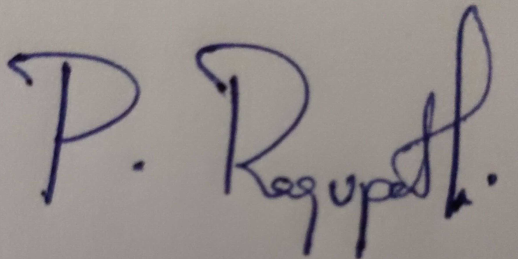 P. Ragupath.